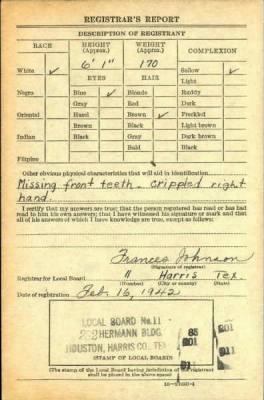 REGISTRAR'S REPORT
DESCRIPTION OF REGISTRANT
RACE HEIGHT (Approx.) WEIGHT (Approx.) COMPLEXION
White ✓ 6' 1" 170 Sallow ✓
EYES HAIR Light
Negro Blue ✓ Blonde Ruddy
Gray Red Dark
Oriental Hazel Brown ✓ Freckled
Brown Black Light brown
Indian Black Gray Dark brown
Bald Black
Filipino
Other obvious physical characteristics that will aid in identification
Missing front teeth. crippled right
hand.
I certify that my answers are true; that the person registered has read or has had
read to him his own answers; that I have witnessed his signature or mark and that
all of his answers of which I have knowledge are true, except as follows:
Frances Johnson
(Signature of registrar)
Registrar for Local Board 11 Harris Tex.
(Number) (City or county) (State)
Date of registration Feb. 16, 1942
LOCAL BOARD No. 11
HERMANN BLDG.
HOUSTON, HARRIS CO. TEX
(STAMP OF LOCAL BOARD)
(The stamp of the Local Board having jurisdiction of the registrant
shall be placed in the above space)